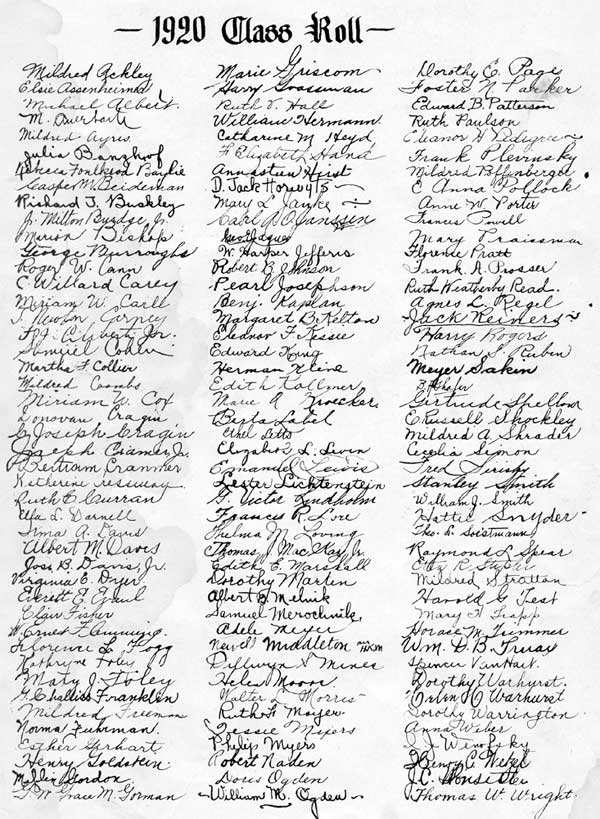 1920 Class Roll
Mildred Ackley
Elsie Assenheimer
Michael Albert.
M. Auerbach
Mildred Ayres
Julia Banzhof
Rebecca Foulkrod Baylie
Casper W. Beideman
Richard J. Buckley
J. Milton Buzdge, Jr.
Marion Bishop
George Burroughs
Roger W. Cann
C. Willard Carey
Miriam W. Carll
J. Newton Carney
Jr.
Samuel Cohen
Martha F. Collier
Mildred Coombs
Miriam W. Cox
Donovan Cragin
G. Joseph Cragin
Joseph Cramer, Jr.
Bertram Cranmer
Katherine
Ruth E. Curran
Ella L. Darnell
Irma A. Davis
Albert M. Davis
Jos. B. Davis, Jr.
Virginia E. Dryer
Everett E.
Clair Fisher
W. Ernest Flemming
Florence L. Fogg
Kathryne Foley
Mary J. Foley
G. Challiss Franklin
Mildred Freeman
Norma Fuhrman.
Esther Gerhart
Henry Goldstein
Gordon
Grace M. Gorman
Marie Griscom
Harry Grossman
Ruth V. Hall
William Hermann
Catharine M. Heyd
F. Elizabeth Hand
Anna Stein Hirst
D. Jack Horowitz
Mary L. Jayke
Carl A. O. Janssen
Geo. Jaques
W. Harper Jefferis
Robert B. Johnson
Pearl Josephson
Benj. Kaplan
Margaret B. Kelton
Eleanor F. Kessie
Edward King
Herman Kline
Edith Kollmer
Marie A. Kroecker
Berta Label
Ethel Letts
Elizabeth L. Levin
Emanuel Lewis
Lester Lichtenstein
G. Victor Lindholm
Frances R. Lore
Thelma M. Loving
Thomas J. MacKay, Jr.
Edith E. Marshall
Dorothy Martin
Albert B. Melnik
Samuel Merochnik
Adele Meyer
Newell Middleton
Dillwyn S. Mines
Helen Moore
Walter L. Morris
Ruth F. Moyer
Jessie Myers
Philip Myers
Robert Naden
Doris Ogden
William R. Ogden
Dorothy E. Page
Foster N. Parker
Edward B. Patterson
Ruth Paulson
Eleanor H. Pedigree
Frank Plevinsky
Mildred Poffenberger
E. Anna Pollock
Anne W. Porter
Francis Powell
Mary Praissman
Florence Pratt
Frank A. Prosser
Ruth Weatherby Read.
Agnes L. Regel
Jack Reiners
Harry Rogers
Nathan L. Rubin
Meyer Sakin
B. Shafer
Gertrude Shellow
E. Russell Shockley
Mildred A. Shrader
Cecelia Simon
Fred
Stanley Smith
William J. Smith
Hattie Snyder
Theo. L. Soistmann
Raymond L. Spear
Etta R.
Mildred Stratton
Harold G. Test
Mary F. Trapp
Horace M. Trimmer
Wm. D. B. Truax
Spencer VanHart.
Dorothy Warhurst.
Orven O. Warhurst
Dorothy Warrington
Anna Weber
Winofsky
Henry C. Wetzel
J. C. Wonsetler
Thomas W. Wright.